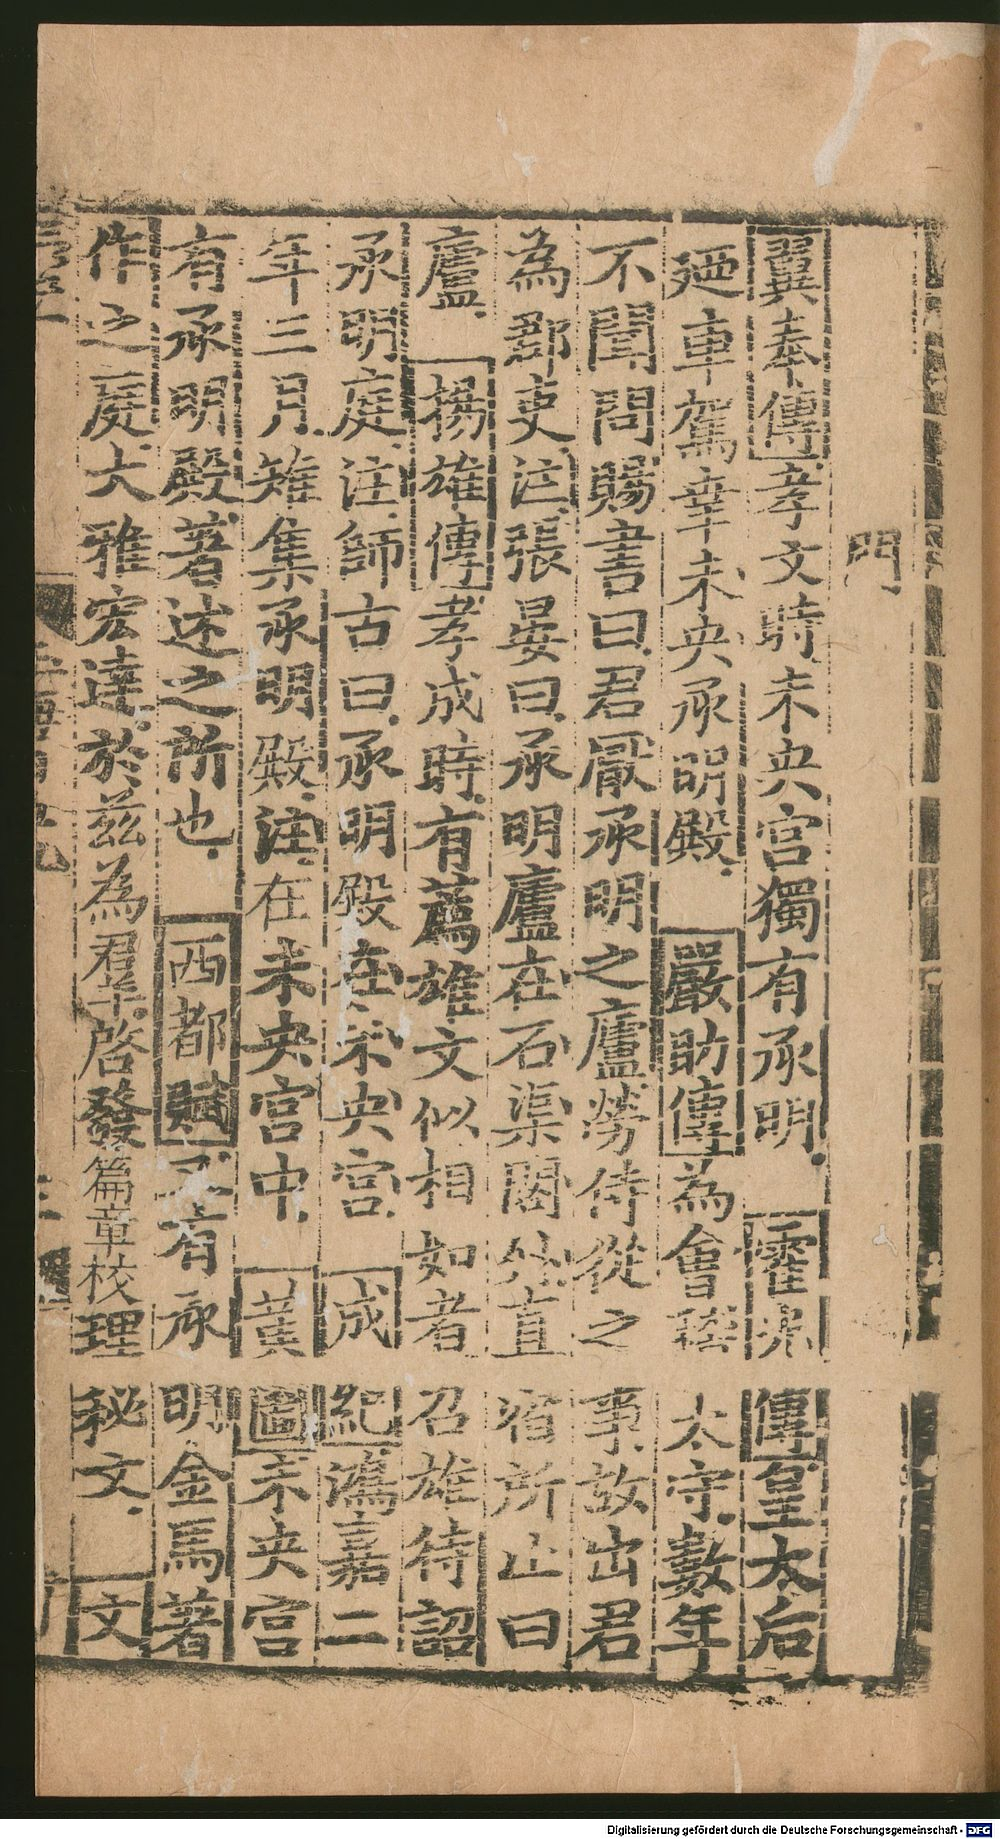 門
翼奉傳孝文時未央宮獨有承明霍光傳皇太后
廼車駕幸未央承明殿嚴助傳為會稽太守數年
不聞問賜書曰君厭承明之廬勞侍從之事故出君
為郡吏注張晏曰承明廬在石渠閣外直宿所止曰
廬揚雄傳孝成時有薦雄文似相如者召雄待詔
承明庭注師古曰承明殿在未央宮成紀鴻嘉二
年三月雉集承明殿注在未央宮中黃圖未央宮
有承明殿著述之所也西都賦又有承明金馬著
作之庭大雅宏達於茲為群啓發篇章校理秘文文
Digitalisierung gefördert durch die Deutsche Forschungsgemeinschaft - DFG